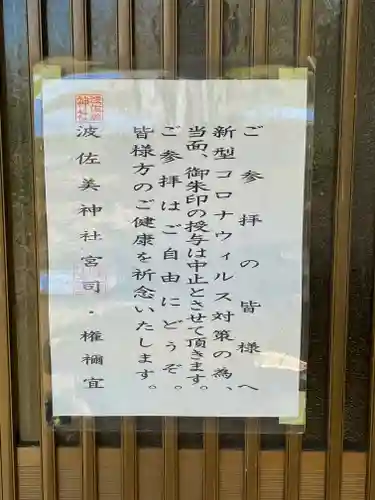 ご参拝の皆様へ
新型コロナウィルス対策の為、
当面、御朱印の授与は中止とさせて頂きます。
ご参拝はご自由にどうぞ。
皆様方のご健康を祈念いたします。
波佐美神社宮司・権禰宜